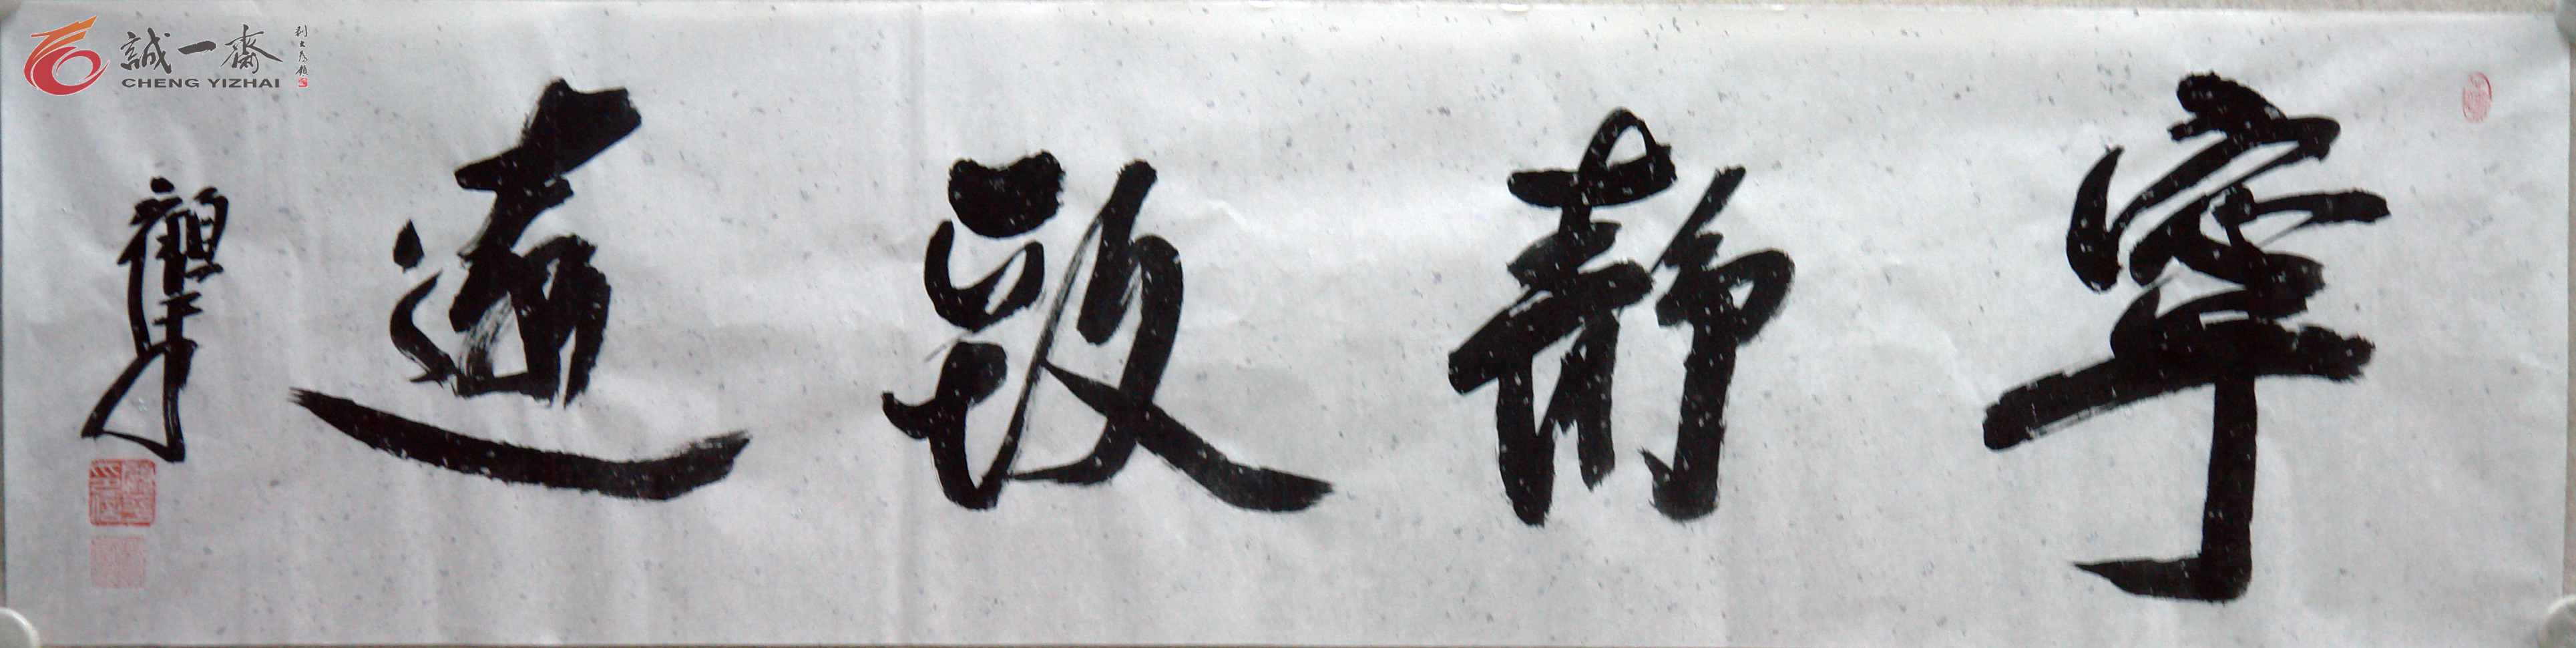 誠一齋
CHENG YIZHAI
寧靜致遠